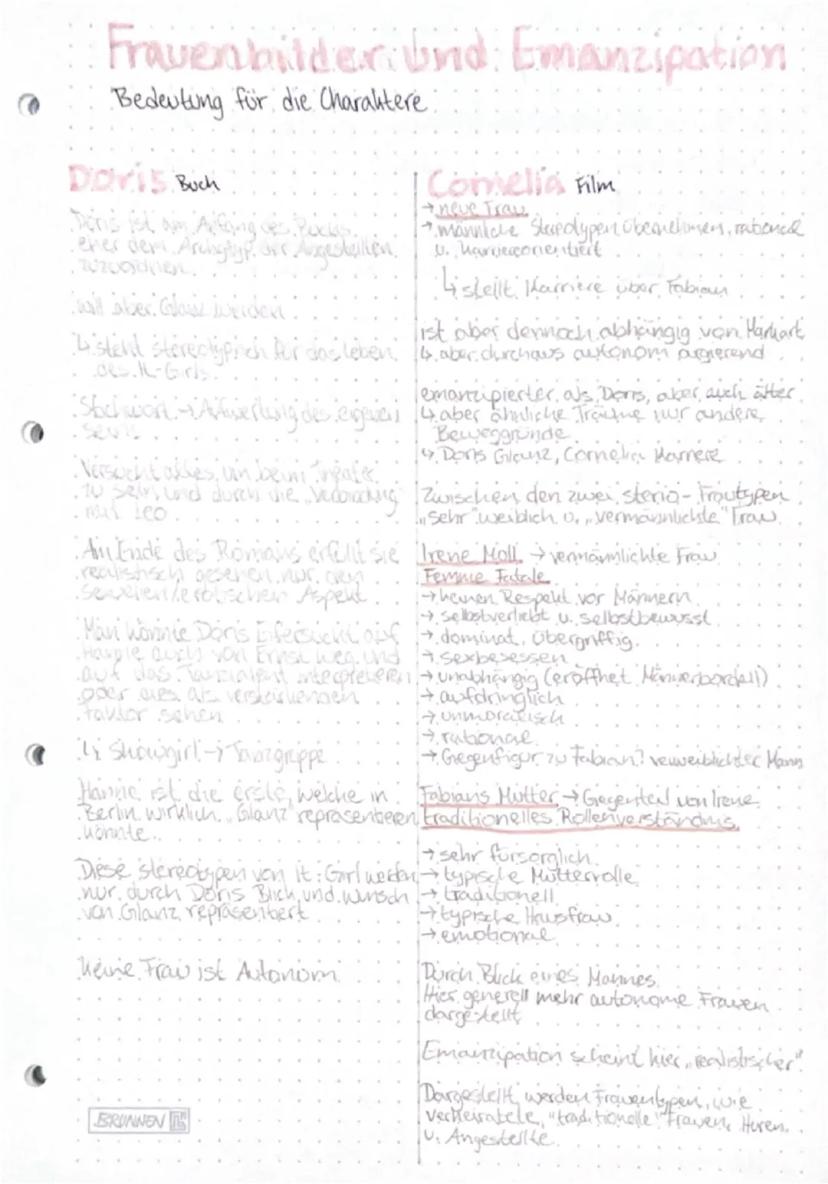 Frauenbilder und Emanzipation
Bedeutung für die Charaktere
Doris Buch
Doris ist am Anfang des Buchs
eher dem Archytyp der Angestellten
zuzuordnen.
will aber Glanz werden
↳ steht stereotypisch für das Leben
des It-Girls
Stichwort → Aufwertung des eigenen
Seins
Versucht alles, um beim Theater
zu sein und durch die Verbindung
mit Leo
Am Ende des Romans erfüllt sie
realistisch gesehen nur den
sexuellen/erotischen Aspekt.
Man könnte Doris Eifersucht auf
Hanne auch von Ernst weg und
auf das Tanztalent interpretieren
oder dies als verstärkenden
Faktor sehen
↳ Showgirl → Tanzgruppe
Hanne ist die erste, welche in
Berlin wirklich „Glanz" repräsentieren
könnte..
Diese stereotypen von It-Girl werden
nur durch Doris Blick und Wunsch
von Glanz repräsentiert
Keine Frau ist Autonom
BRUNNEN
Cornelia Film
→ neue Frau
→ männliche Stereotypen übernehmen, rational
u. karriereorientiert
↳ stellt Karriere über Fabian
ist aber dennoch abhängig von Markart
↳ aber durchaus autonom agierend
emanzipierter als Doris, aber auch älter
↳ aber ähnliche Träume nur andere
Beweggründe
↳ Doris Glanz, Cornelia Karriere
Zwischen den zwei sterio-Frautypen
„sehr" weiblich u. „vermännlichte" Frau
Irene Moll → vermännlichte Frau
Femme Fatale
→ keinen Respekt vor Männern
→ selbstverliebt u. selbstbewusst
→ dominat, übergriffig
→ sexbesessen
→ unabhängig (eröffnet Männerbordell)
→ aufdringlich
→ unmoralisch
→ rational
→ Gegenfigur zu Fabian? verweiblichter Mann
Fabians Mutter → Gegenteil von Irene
traditionelles Rollenverständnis
→ sehr fürsorglich
→ typische Mutterrolle
→ traditionell
→ typische Hausfrau
→ emotional
Durch Blick eines Mannes
Hier generell mehr autonome Frauen
dargestellt
Emanzipation scheint hier „realistischer"
Dargestellt werden Frauentypen, wie
verheiratete, "traditionelle" Frauen, Huren
u. Angestellte